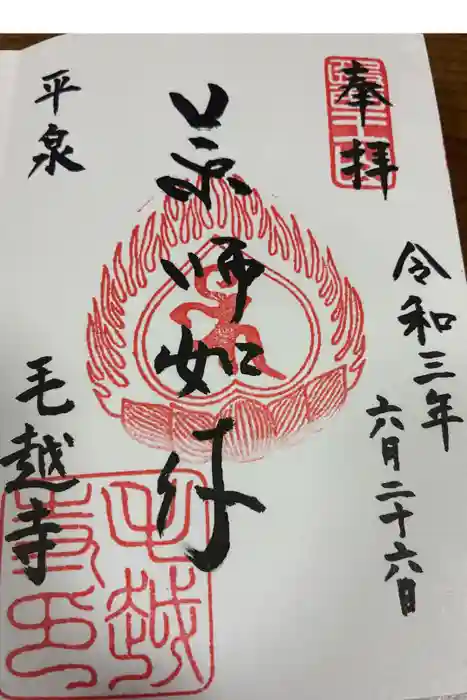 奉拝
令和三年
六月二十六日
薬師如来
平泉
毛越寺
毛越寺印